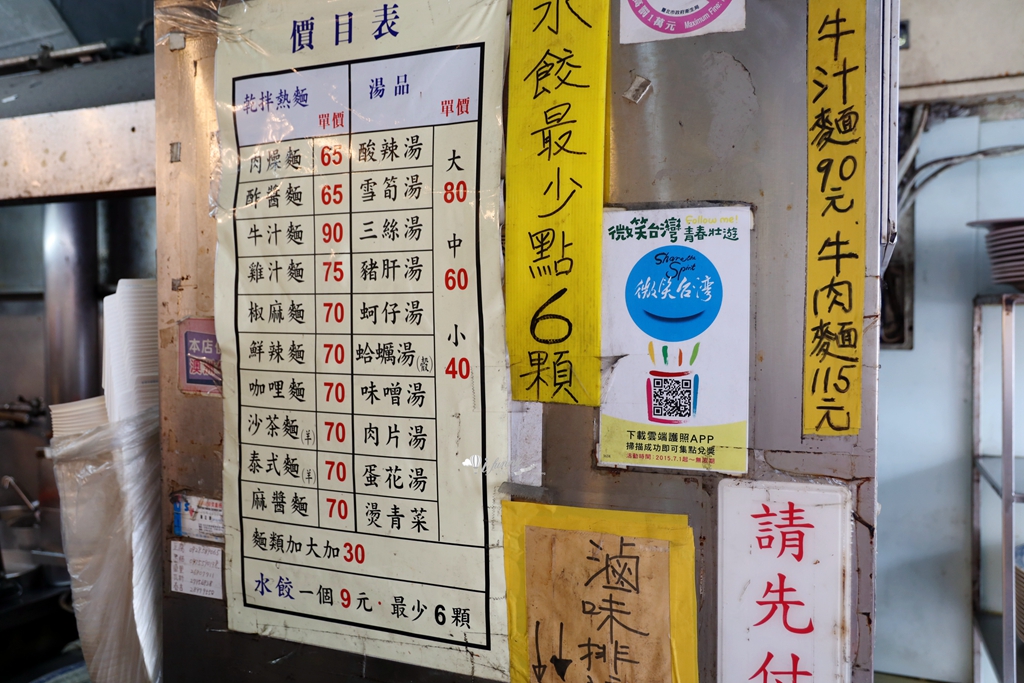 價目表
乾拌熱麵 單價 湯品 單價
肉燥麵 65 酸辣湯
酢醬麵 65 雪筍湯
牛汁麵 90 三絲湯
雞汁麵 75 豬肝湯
椒麻麵 70 蚵仔湯
鮮辣麵 70 蛤蠣湯(殼)
咖哩麵 70 味噌湯
沙茶麵(羊) 70 肉片湯
泰式麵(羊) 70 蛋花湯
麻醬麵 70 燙青菜
大
80
中
60
小
40
麵類加大加30
水餃一個9元·最少6顆
水餃最少點6顆
牛汁麵90元 牛肉麵115元
Maximum Fine:
Follow me!
微笑台灣 青春壯遊
Share the Spirit
微笑台灣
下載雲端護照APP
掃描成功即可集點兌獎
活動時間：2015.7.1起～無限期
滷味排
請先付
本店